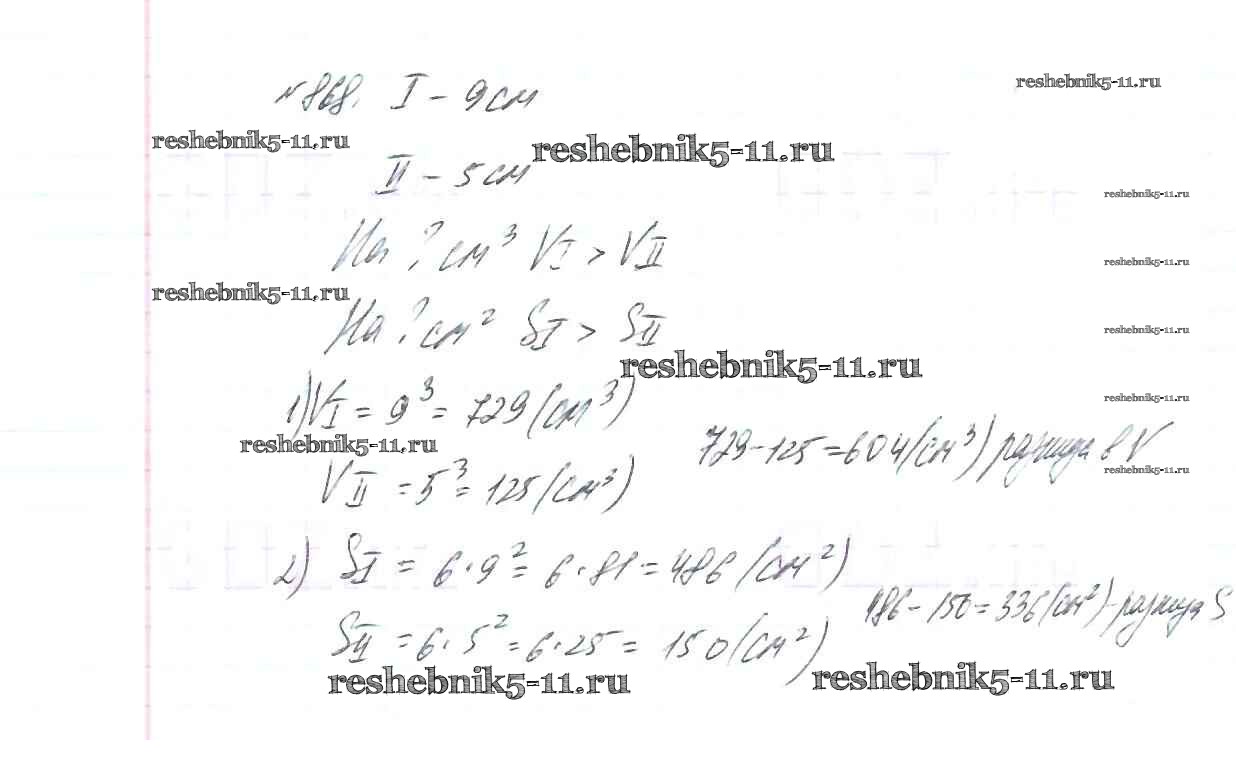 №868. I – 9 см
reshebnik5-11.ru
reshebnik5-11.ru
reshebnik5-11.ru
II – 5 см
reshebnik5-11.ru
На ? см³ VI > VII
reshebnik5-11.ru
reshebnik5-11.ru
На ? см² SI > SII
reshebnik5-11.ru
reshebnik5-11.ru
1) VI = 9³ = 729 (см³)
reshebnik5-11.ru
reshebnik5-11.ru
729 – 125 = 604 (см³) разница в V
reshebnik5-11.ru
VII = 5³ = 125 (см³)
2) SI = 6 · 9² = 6 · 81 = 486 (см²)
486 – 150 = 336 (см²) – разница S
SII = 6 · 5² = 6 · 25 = 150 (см²)
reshebnik5-11.ru
reshebnik5-11.ru